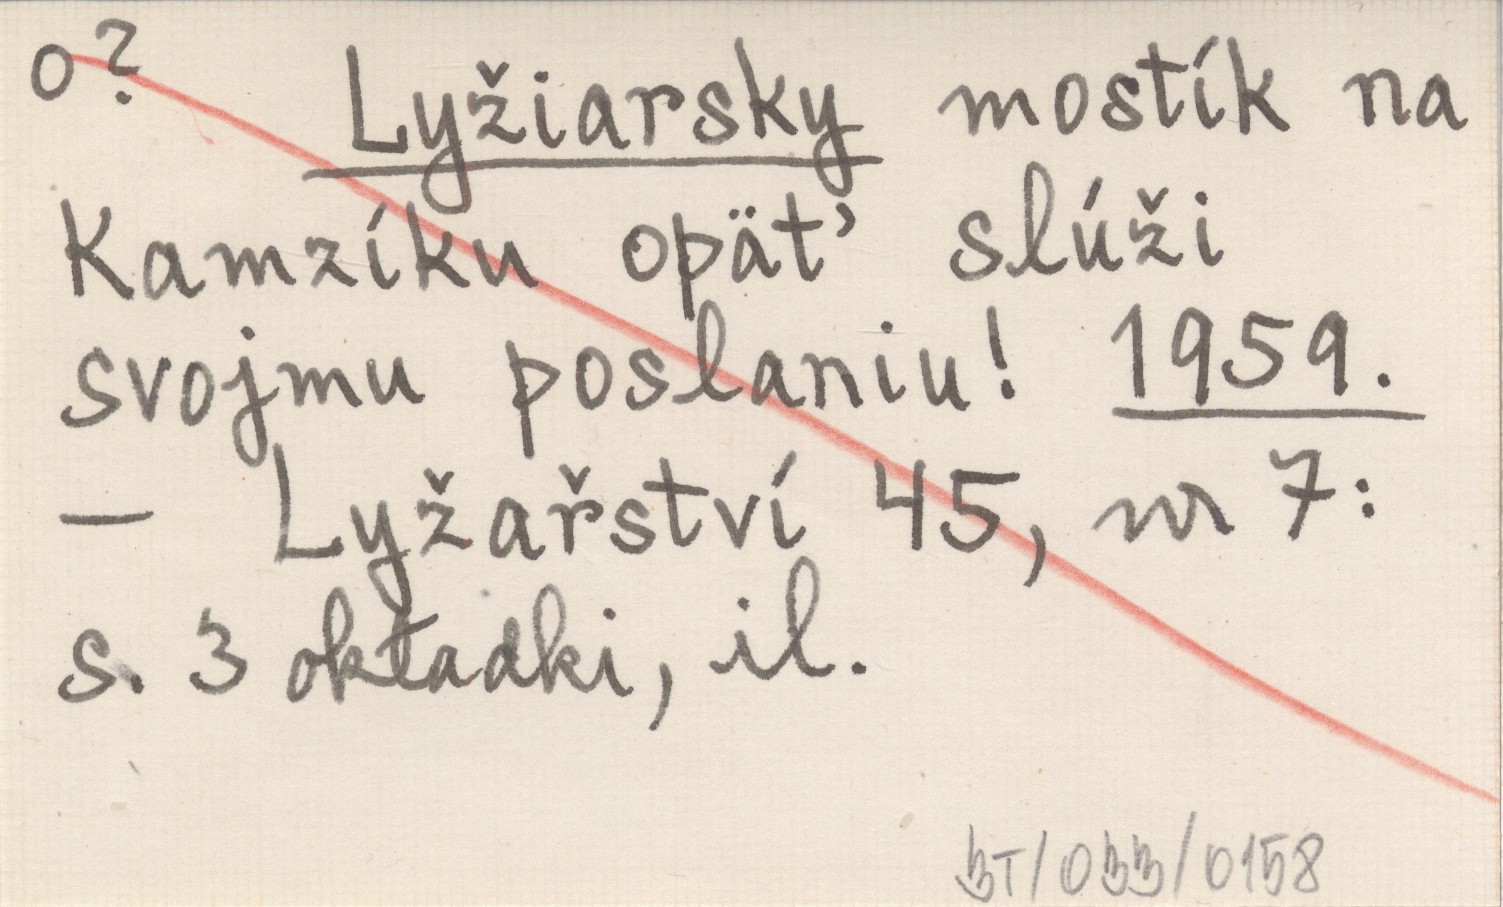 o? Lyžiarsky mostík na
Kamzíku opäť slúži
svojmu poslaniu! 1959.
— Lyžařství 45, nr 7:
s. 3 okładki, il.
BT/033/0158